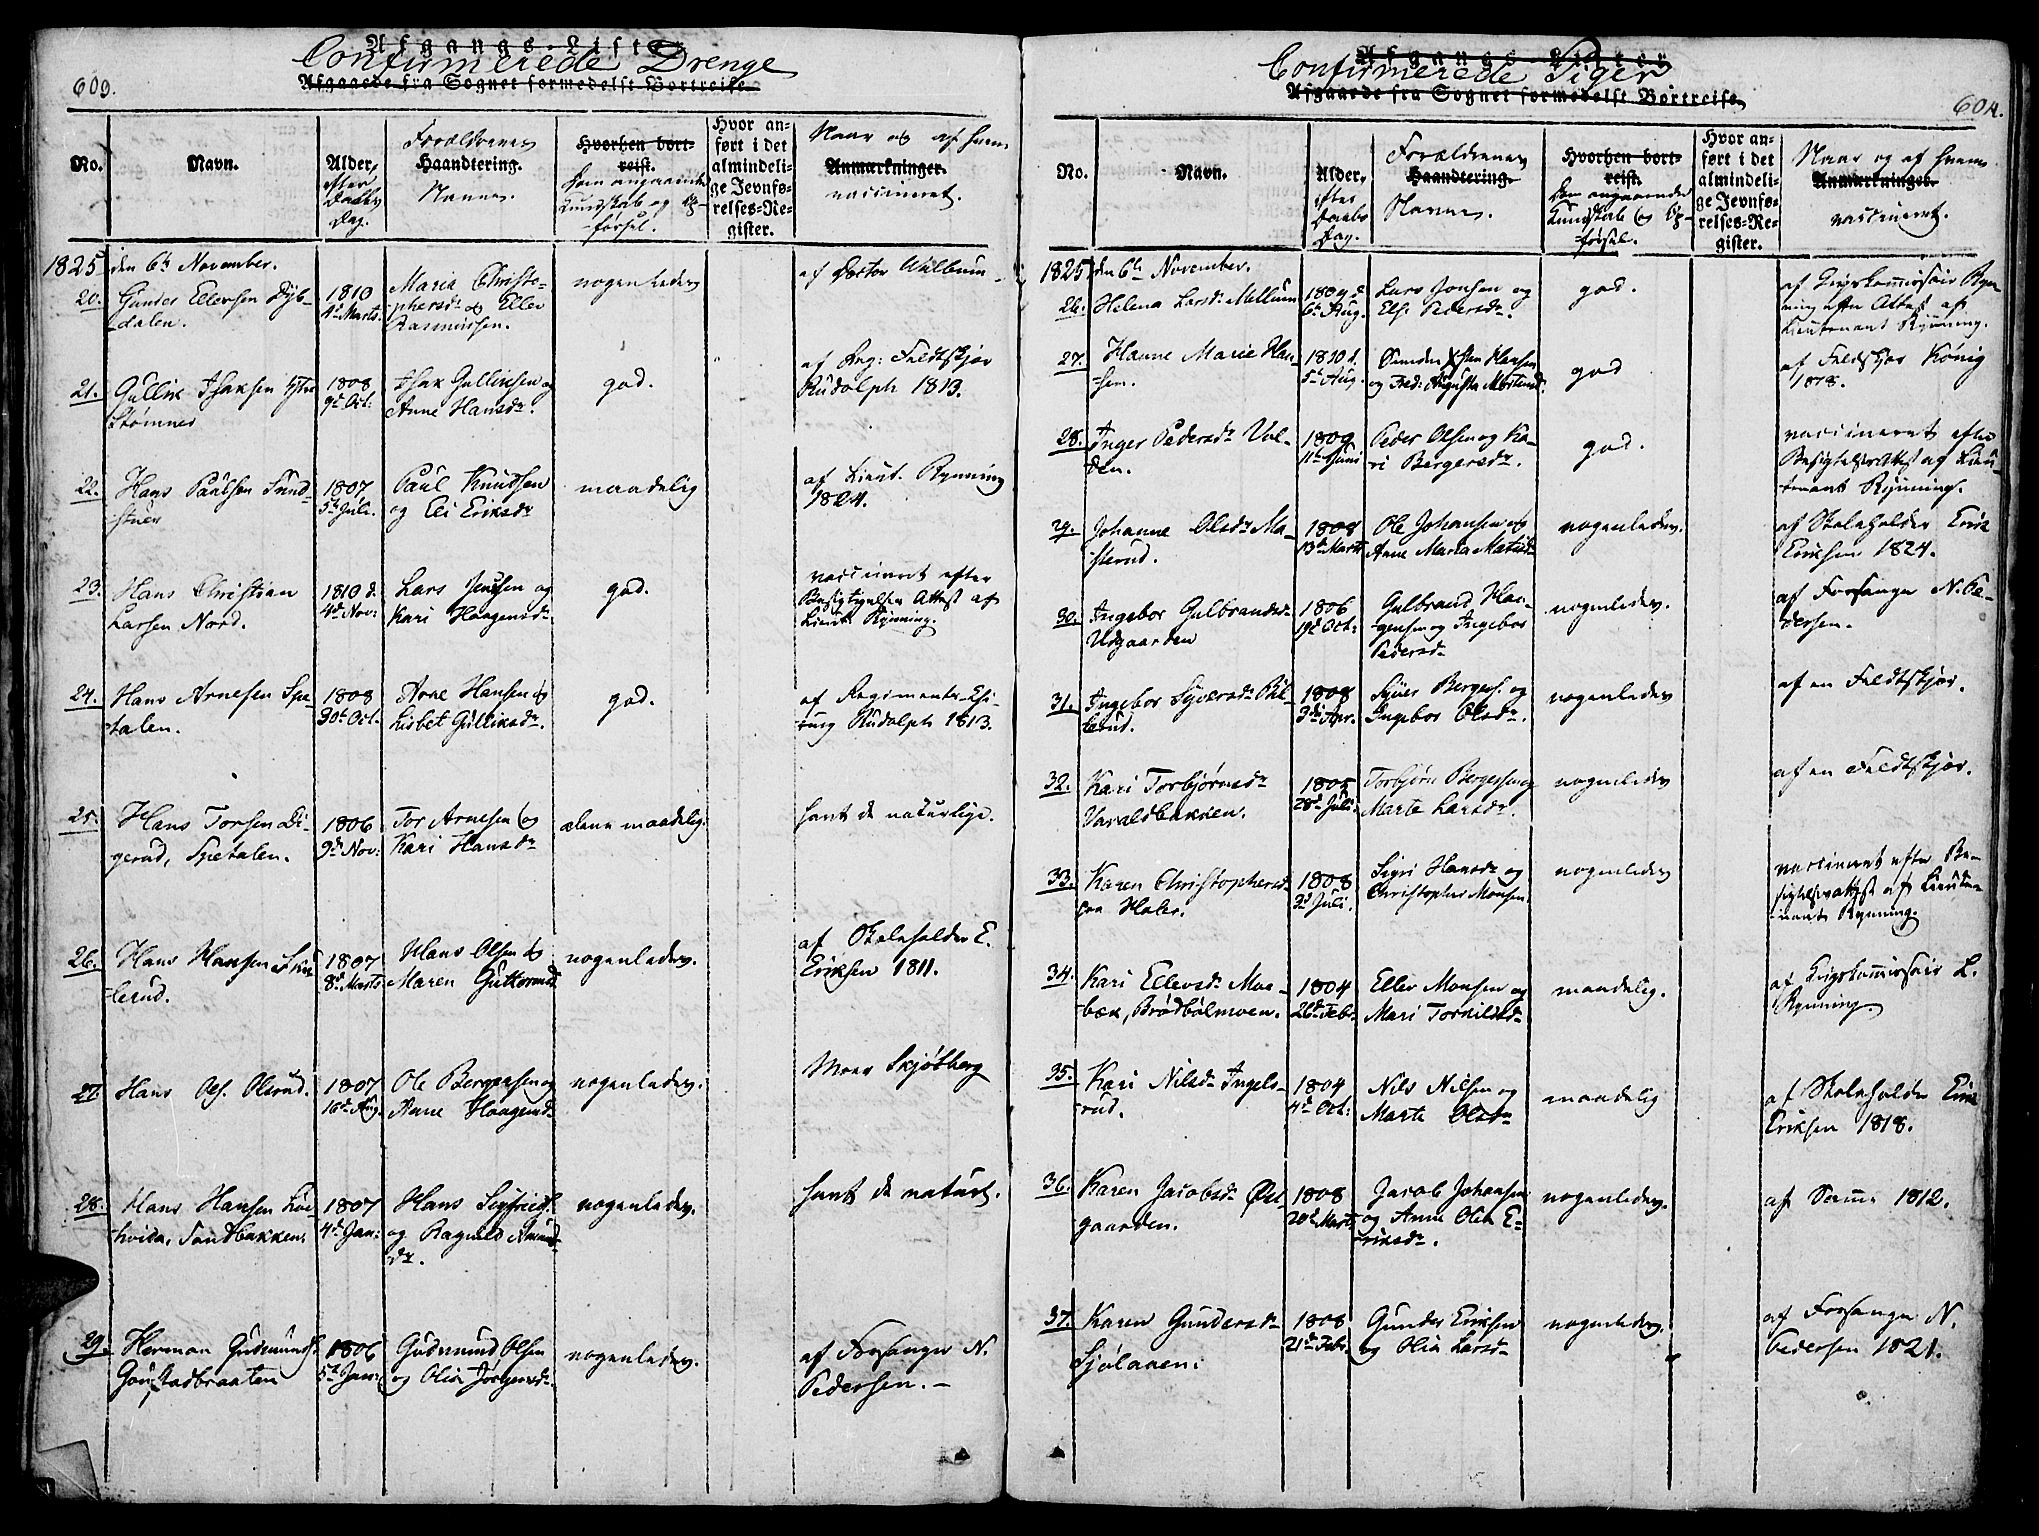 603.
Afgangs-Liste
Confirmerede Drenge
Afgaaede fra Sognet formedelst Bortreise.
No.
Navn.
Alder,
efter
Daabs
Dag.
Forældrenes
Haandtering.
Navne.
Hvorhen bort-
reist.
Dom angaaende
Kundskab og Op-
-førsel.
Hvor an-
ført i det
almindeli-
ge Jevnfø-
relses-Re-
gister.
Naar og af hvem
Anmærkninger.
vaccineret.
1825 den 6te November.
20. Gunder Ellevsen Dyb-
-dalen.
1810
1d Marts.
Maria Christo-
phersdr og Ellev
Rasmussen.
nogenledes
af Doctor
21. Gullik Isaksen
Stømner
1808
9d Oct:
Isak Gulliksen og
Anne Hansdr.
god.
af Feldtskjær
Rudolph 1813.
22. Hans Paulsen Sund-
-stuen
1807
5te Juli.
Paul Knudsen
og Eli Eriksdr
maadelig
af Lieut. Rynning
1824.
23. Hans Christian
Larsen Nord.
1810 d.
4d Nov:
Lars Jensen og
Kari Haagensdr.
god.
vaccineret efter
Besigtigelses Attest af
Lieut. Rynning.
24. Hans Arnesen Spe-
-talen.
1808
30te Oct.
Arne Hansen og
Lisbet Gulliksdr.
god.
af Regiments-Chi-
-rurg Rudolph 1813.
25. Hans Torsen Di-
gerud, Spetalen.
1806
9d Nov:
Tor Arnesen og
Kari Hansdr
alene maadelig.
havt de naturlige.
26. Hans Hansen
-lerud.
1807
8d Marts
Hans Olsen og
Maren Guttormsd.
nogenledes.
af Skoleholder E.
Eriksen 1811.
27. Hans Ols. Olsrud.
1807
16d Aug.
Ole Bergersen og
Anne Haagensdr
nogenledes.
Moer Skjøtberg
28. Hans Hansen
Sandbakken.
1807
4d Jan:
Hans Sigfrids.
og Ragnild Amund-
-dr.
nogenledes.
havt de naturl.
29. Herman Gudmunds.
Gaustadbraaten
1806
5te Jan:
Gudmund Olsen
og Olia Jørgensdr.
nogenledes.
af Forsanger N.
Pedersen.-
Afgangs-Lister
Confirmerede Piger
Afgaaede fra Sognet formedelst Bortreise,
604.
No.
Navn.
Alder,
efter
Daabs
Dag.
Forældrenes
Haandtering.
Navne.
Hvorhen bort-
reist.
Dom angaaende
Kundskab og Op-
-førsel.
Hvor an-
ført i det
almindeli-
ge Jevnfø-
relses-Re-
gister.
Naar og af hvem
Anmærkninger.
vaccineret.
1825 den 6te November.
26. Helena Larsdr Mellum
1809 d.
6te Aug.
Lars Jonsen og
Else Pedersdr.
god.
af Krigskommissair Ryn-
ning efter Attest af
Lieutenant Rynning.
27. Hanne Marie Han-
-sen.
1810 d.
5te Aug.
Hansen
og Fred: Augusta
god
af Feldskjær König
1818.
28. Inger Pedersdr Vol-
den.
1809
11te Juni
Peder Olsen og Ka-
-ri Bergersdr.
god.
vaccineret efter
Besigtelsesattest af Lieu-
-tenant Rynning.
29. Johanne Olsdr Ma-
-sterud.
1808
13d Marts
Ole Johansen og
Anne Maria Matisdr
nogenledes.
af Skoleholder Erik
Eriksen 1824.
30. Ingebor Gulbrandsdr
Udgaarden
1806
19d Oct:
Gulbrand Haa-
-gensen og Ingebor
Pedersdr
nogenledes.
af Forsanger N. Pe-
dersen.
31. Ingebor Syversdr Bil-
-lerud.
1808
3die Apr.
Syver Bergers. og
Ingebor Olsdr.
nogenledes
af en Feldtskjær.
32. Kari Torbjørnsdr
Varaldbakken.
1805
28d Juli.
Torbjørn Bergersen og
Marte Larsdr.
nogenledes
af en Feldtskjær.
33. Karen Christophersdr
fra Holer.
1808
3d Juli.
Sigri Hansdr og
Christopher Monsen.
nogenledes
vaccineret efter Be-
sigtelsesattest af Lieute-
-nant Rynning.
34. Kari Ellevsdr Moe-
bæk, Brødbølmoen.
1804
26d Febr
Ellev Monsen og
Mari Torkildsdr
maadelig.
af Krigskommissair L.
Rynning.
35. Kari Nilsdr Ingels-
-rud.
1804
4d Oct:
Nils Nilsen og
Marte Olsdr
maadelig
af Skoleholder Erik
Eriksen 1818.
36. Karen Jacobsdr Øst-
gaarden.
1808
20d Marts
Jacob Johansen
og Anne Olia E-
-riksdr.
nogenledes.
af Samme 1812.
37. Karen Gundersdr
Sjølaaen.
1808
21d Febr.
Gunder Eriksen
og Olia Larsdr
nogenledes.
af Forsanger N.
Pedersen 1821.